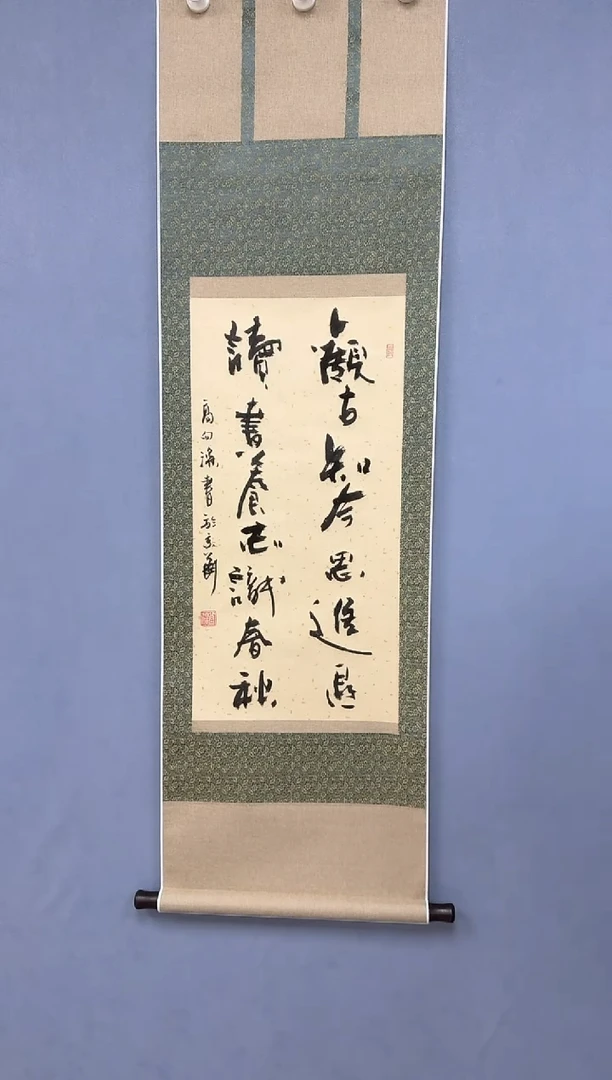 觀古知今思進退
讀書養志識春秋
書於京華